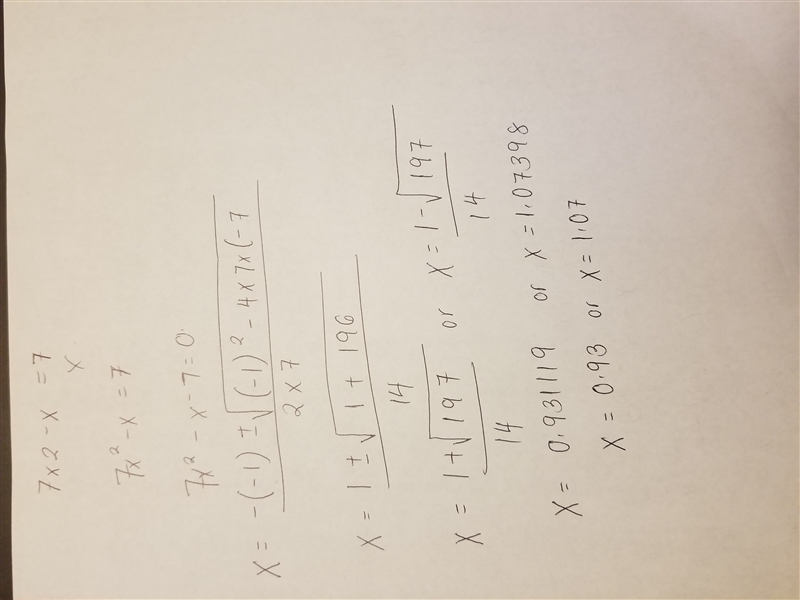 7x2 - x = 7
x
7x² - x = 7
7x² - x - 7 = 0.
x = -(-1) ± √(-1)² - 4x7x(-7
2x7
x = 1 ± √1 + 196
14
x = 1 + √197 or x = 1 - √197
14 14
x = 0.931119 or x = 1.07398
x = 0.93 or x = 1.07